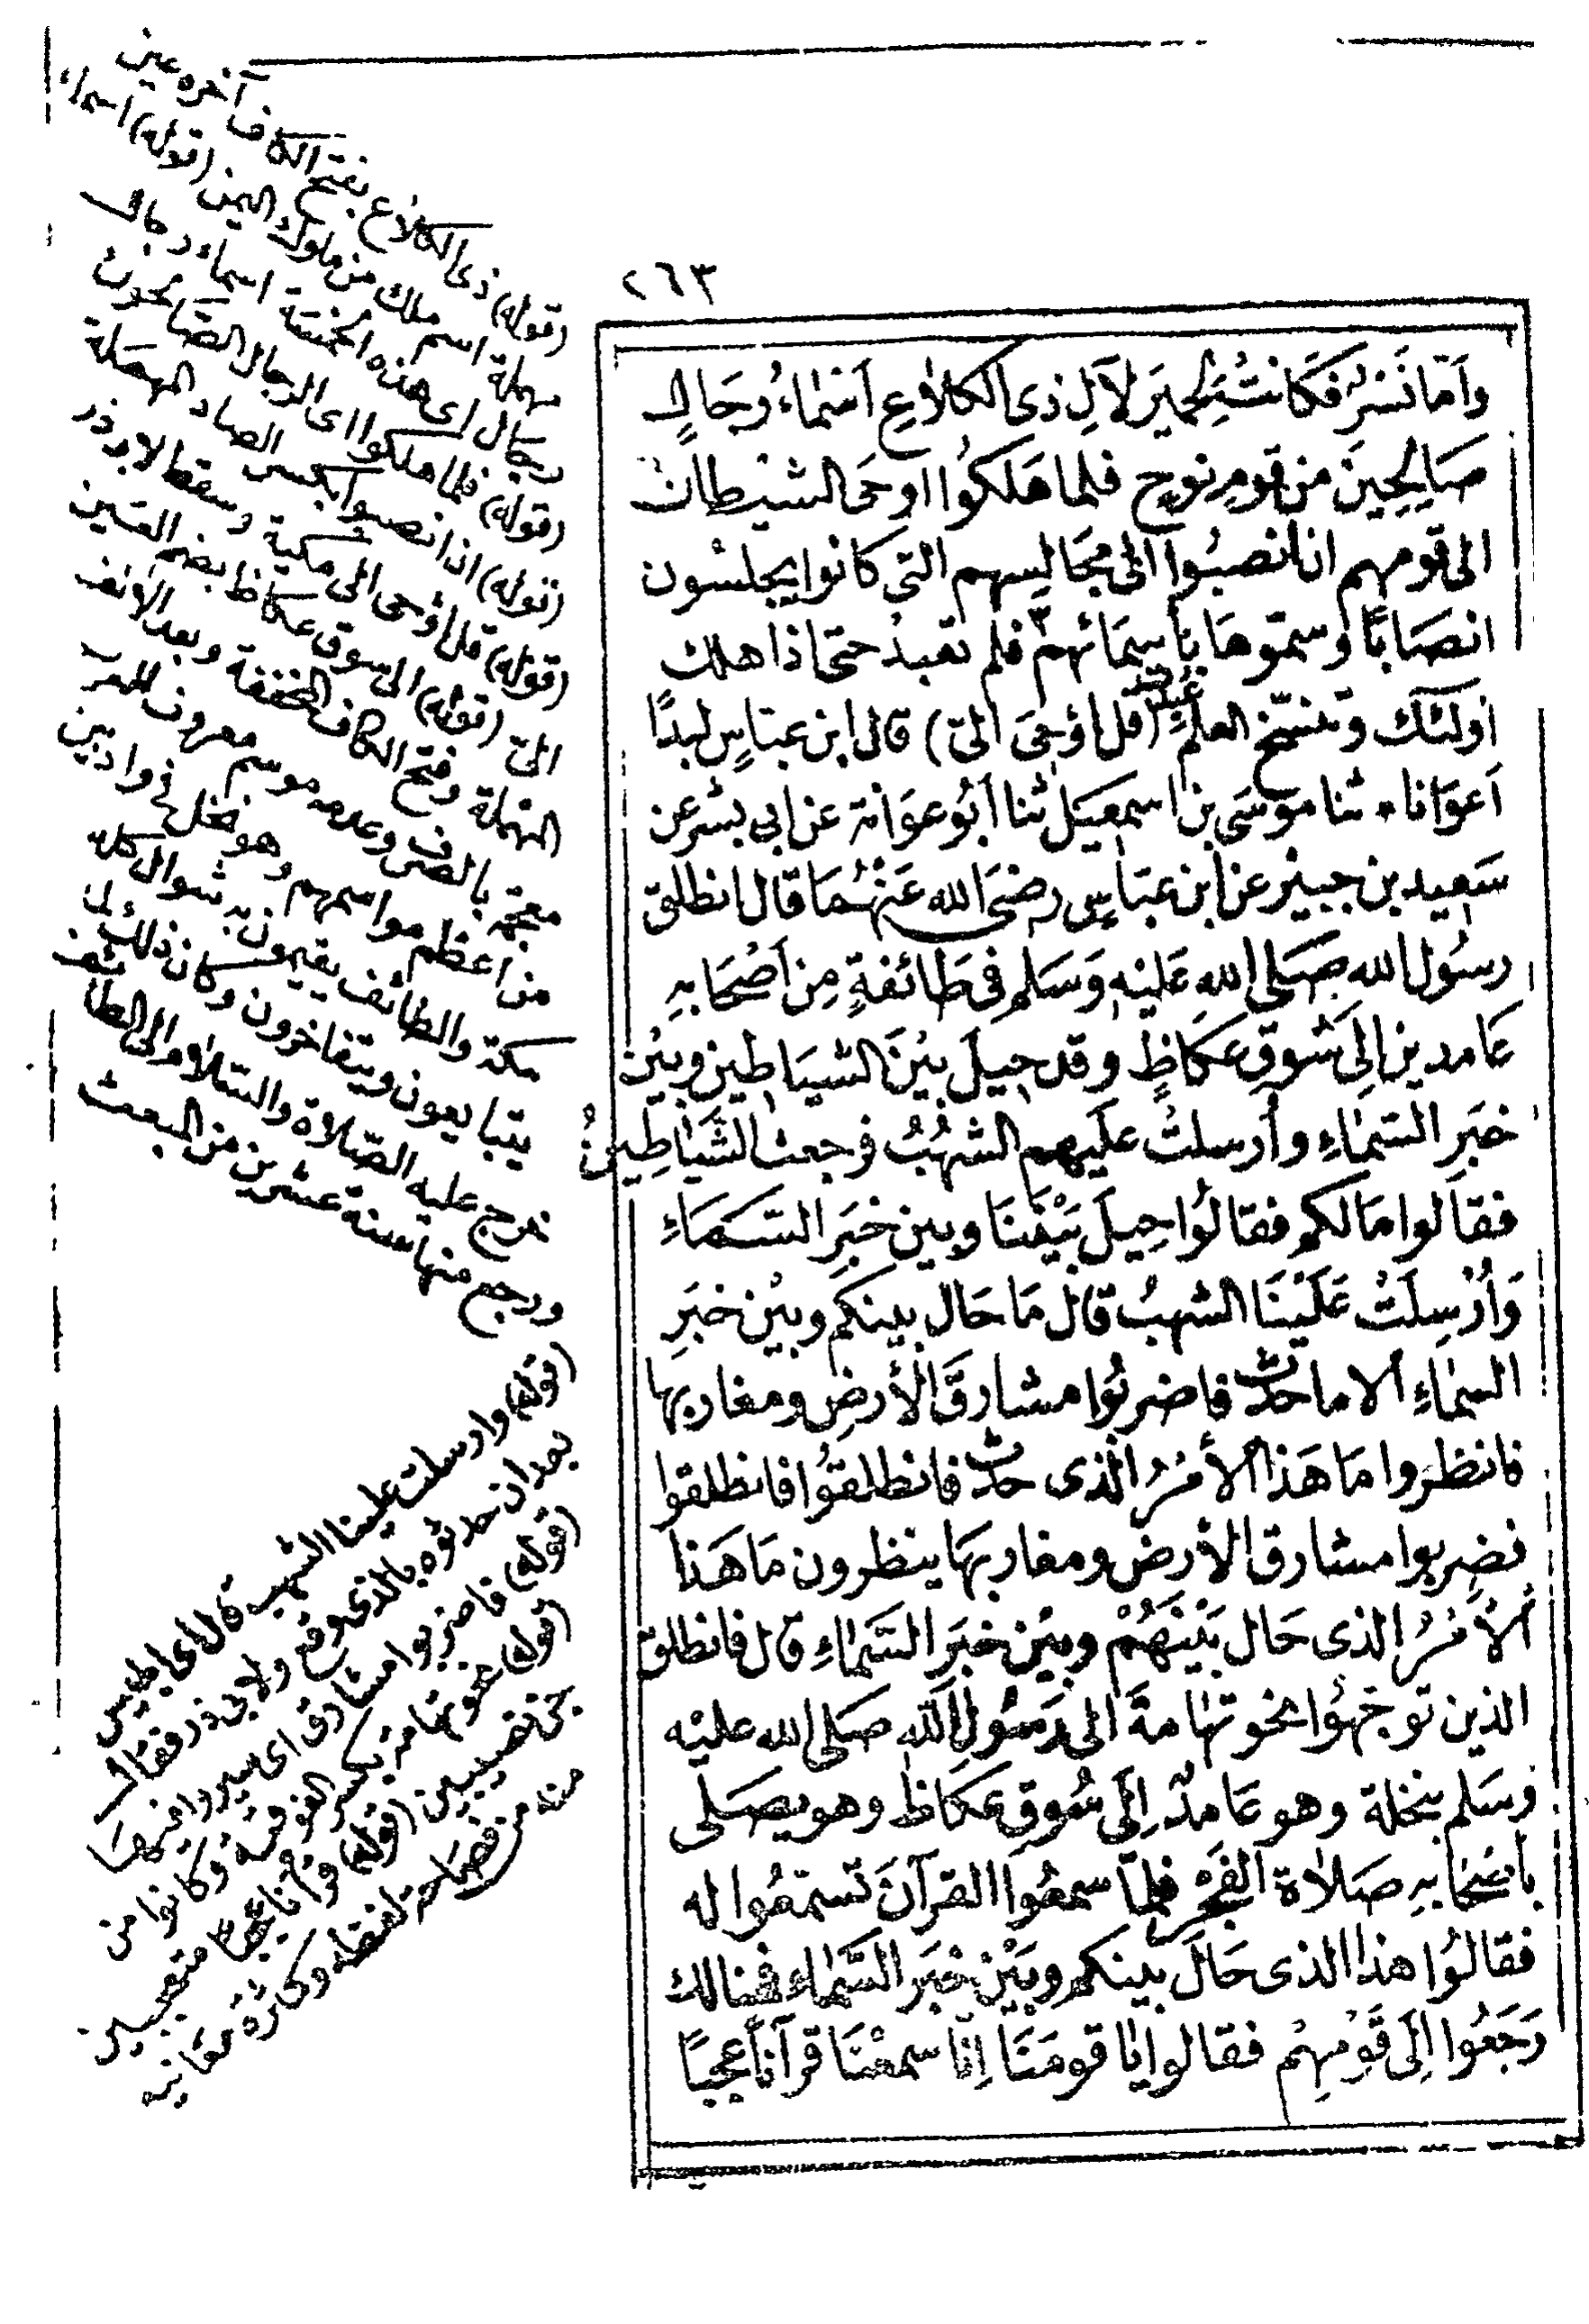 ٢٦٣
وأما نسر فكانت لحمير لآل ذى الكلاع أسماء رجال
صالحين من قوم نوح فلما هلكوا اوحى الشيطان
الى قومهم ان انصبوا الى مجالسهم التى كانوا يجلسون
انصابا وسموها باسمائهم فلم تعبد حتى اذا هلك
اولئك وتنسخ العلم عبدت (قل اوحى الىّ) قال ابن عباسٍ لبدًا
أعوانا ٭ ثنا موسى بن اسمعيل ثنا أبو عوانة عن ابى بشر عن
سعيد بن جبير عن ابن عباس رضى الله عنهما قال انطلق
رسول الله صلى الله عليه وسلم فى طائفةٍ من أصحابه
عامدين إلى سوق عكاظٍ وقد حيل بين الشياطين وبين
خبر السماء وأرسلت عليهم الشهب فرجعت الشياطين
فقالوا مالكم فقالوا حيل بيننا وبين خبر السماء
وأرسلت علينا الشهب قال ما حال بينكم وبين خبر
السماء الا ما حدث فاضربوا مشارق الأرض ومغاربها
فانظروا ما هذا الأمر الذى حدث فانطلقوا فانطلقوا
فضربوا مشارق الأرض ومغاربها ينظرون ما هذا
الأمر الذى حال بينهم وبين خبر السماء قال فانطلق
الذين توجهوا نحو تهامة الى رسول الله صلى الله عليه
وسلم بنخلة وهو عامدٌ إلى سوق عكاظ وهو يصلى
بأصحابه صلاة الفجر فلما سمعوا القرآن تسمعوا له
فقالوا هذا الذى حال بينكم وبين خبر السماء فهنالك
رجعوا الى قومهم فقالوا يا قومنا إنا سمعنا قرآنا عجبًا
(قوله) ذى الكلاع بفتح الكاف آخره عين
مهملة اسم ملك من ملوك اليمن (قوله) اسماء
رجال اى هذه الخمسة اسماء رجال
(قوله) فلما هلكوا اى الرجال الصالحون
(قوله) ان انصبوا بكسر الصاد المهملة
(قوله) قل اوحى الى مكية وسقط لابى ذر
الىّ (قوله) الى سوق عكاظ بضم العين
المهملة وفتح الكاف المخففة وبعد الالف
معجمة بالصرف وعدمه موسم معروف للعرب
من اعظم مواسمهم وهو نخل فى واد بين
مكة والطائف يقيمون به شوال كله
يتبايعون ويتفاخرون وكان ذلك لما
خرج عليه الصلاة والسلام الى الطائف
ورجع منها سنة عشر من المبعث
(قوله) وارسلت علينا الشهب قال اى ابليس
بعد ان حدثوه بالذى وقع ولابى ذر فقال
(قوله) فاضربوا مشارق اى سيروا فيها
(قوله) نحو تهامة بكسر الفوقية وكانوا من
جن نصيبين (قوله) قرآنا عجبا متعجبين
منه من فصاحة لفظه وكثرة معانيه